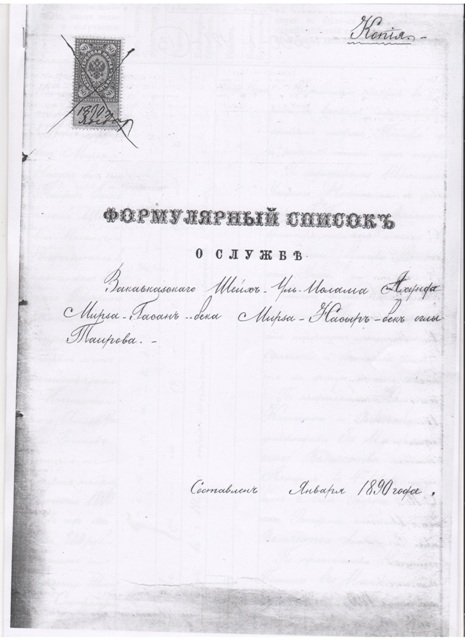 Копія.
1890
ФОРМУЛЯРНЫЙ СПИСОКЪ
О СЛУЖБѢ
Закавказскаго Шейхъ-Уль-Ислама Ахунда
Мирза-Гасанъ-бека Мирза-Насыръ-бекъ оглы
Таирова.
Составленъ Января 1890 года.